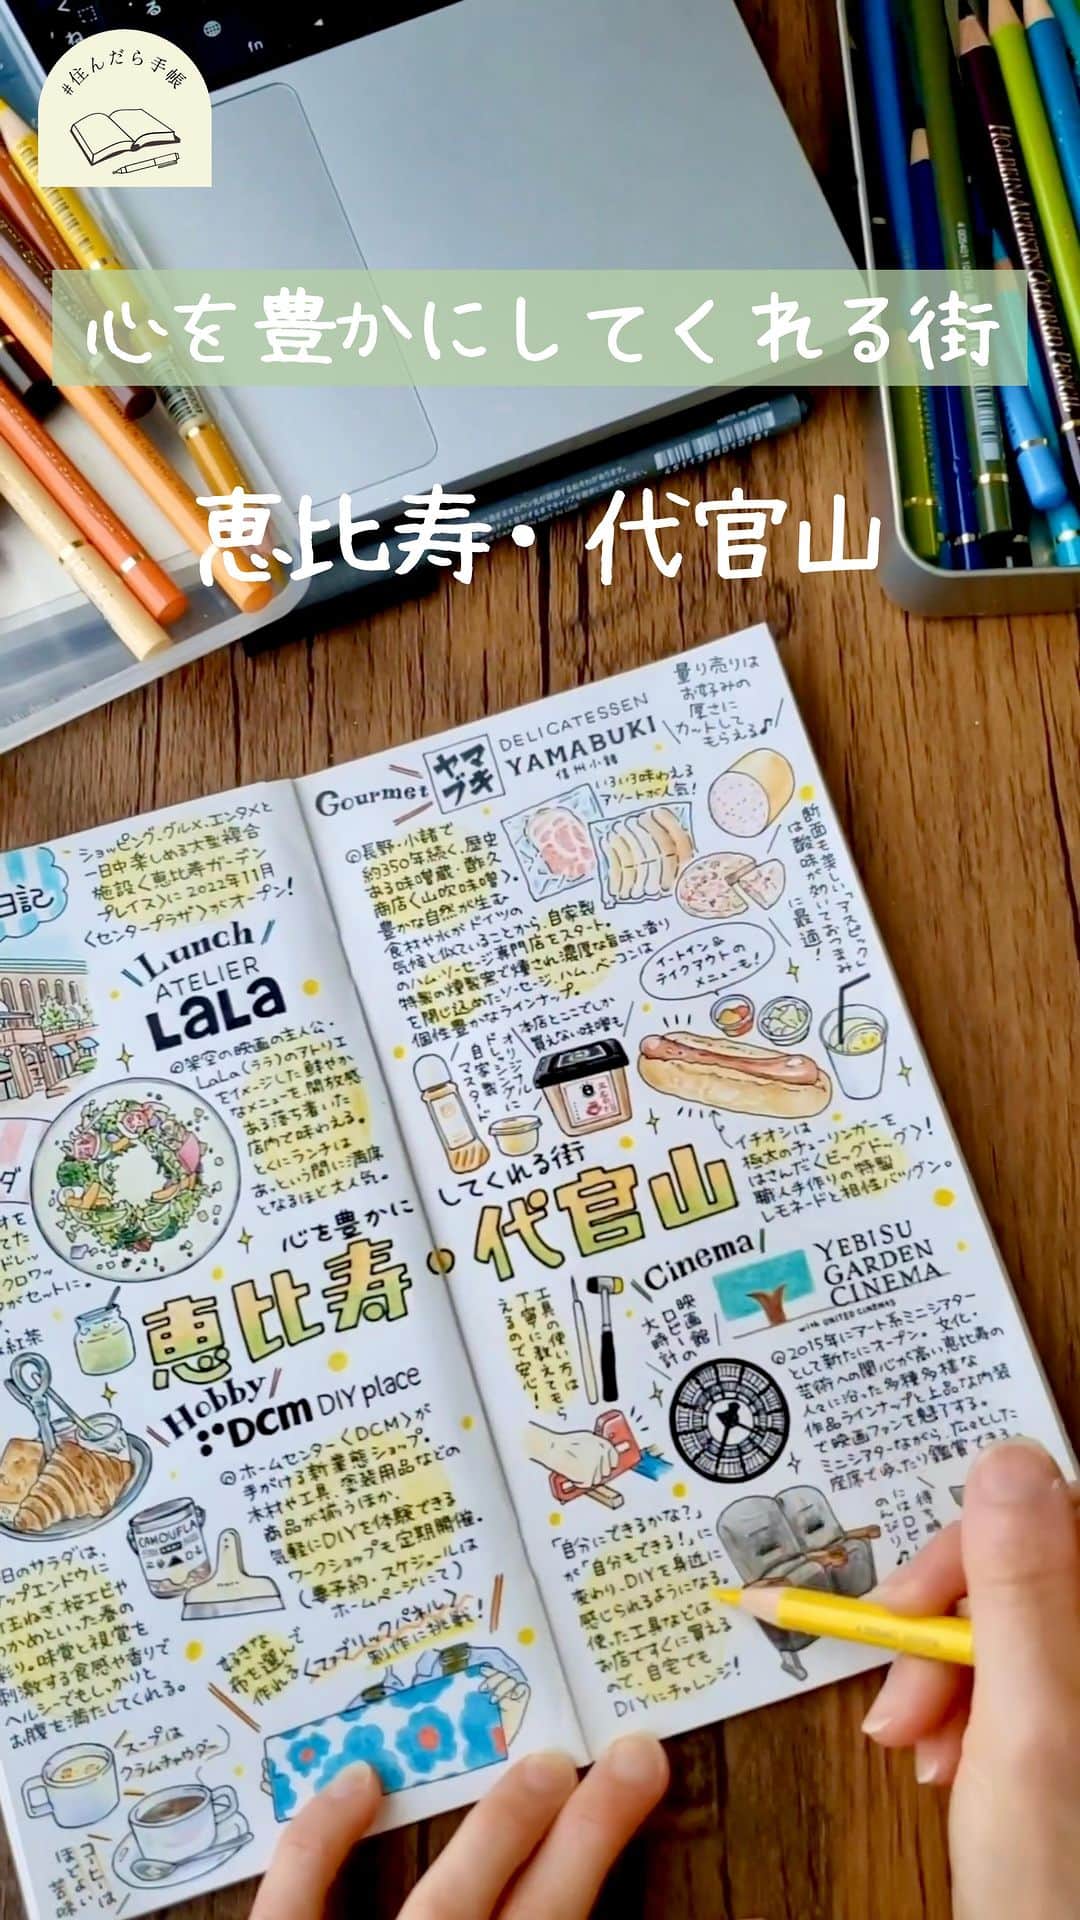 #住んだら手帳
心を豊かにしてくれる街
恵比寿・代官山
fn
HOLBEIN ARTISTS' COLORED PENCIL
日記
ショッピング、グルメ、エンタメと
一日中楽しめる大型複合
施設〈恵比寿ガーデン
プレイス〉に2022年11月
〈センタープラザ〉がオープン!
Lunch
ATELIER
LaLa
◎架空の映画の主人公・
LaLa(ララ)のアトリエ
をイメージした鮮やか
なメニューを、開放感
ある落ち着いた
店内で味わえる。
とくにランチは
あっという間に満席
となるほど大人気。
クロワッ
がセットに。
紅茶
日のサラダは、
ップエンドウに
玉ねぎ、桜エビや
わかめといった春の
彩り。味覚と視覚を
刺激する食感や香りで
ヘルシーでもしっかりと
お腹を満たしてくれる。
スープは
クラムチャウダー
コーヒーは
ほどよい
苦味
心を豊かに
してくれる街
恵比寿・代官山
Hobby
DCM DIY place
◎ホームセンター〈DCM〉が
手がける新業態ショップ。
木材や工具、塗装用品などの
商品が揃うほか、
気軽にDIYを体験できる
ワークショップも定期開催。
(要予約・スケジュールは
ホームページにて)
好きな
布を選んで
作れる
〈ファブリックパネル〉
制作に挑戦!
Gourmet
ヤマブキ
DELICATESSEN
YAMABUKI
信州小諸
量り売りは
お好みの
厚さに
カットして
もらえる♪
いろいろ味わえる
アソートが人気!
◎長野・小諸で
約350年続く、歴史
ある味噌蔵・酢久
商店〈山吹味噌〉。
豊かな自然が生む
食材や水がドイツの
気候と似ていることから、自家製
のハム・ソーセージ専門店をスタート。
特製の燻製窯で燻され濃厚な旨味と香り
を閉じ込めたソーセージ、ハム、ベーコンは
個性豊かなラインナップ。
断面も美しい〈アスピック〉
は酸味が効いておつまみ
に最適!
イートイン&
テイクアウトの
メニューも!
本店とここでしか
買えない味噌も
オリジナルに
自家製
マスタード
イチオシは
極太のチューリンガーを
はさんだ〈ビッグドッグ〉!
職人手作りの特製
レモネードと相性バツグン。
Cinema
YEBISU
GARDEN
CINEMA
with UNITED CINEMAS
工具の使い方は
丁寧に教えてもら
えるので安心!
映画館の
ロビーの
大時計
◎2015年にアート系ミニシアター
として新たにオープン。文化・
芸術への関心が高い恵比寿の
人々に沿った多種多様な
作品ラインナップと上品な内装
で映画ファンを魅了する。
ミニシアターながら、広々とした
座席でゆったり鑑賞できる。
「自分にできるかな?」
が「自分もできる!」に
変わり、DIYを身近に
感じられるようになる。
使った工具などは
お店ですぐに買える
ので、自宅でも
DIYにチャレンジ!